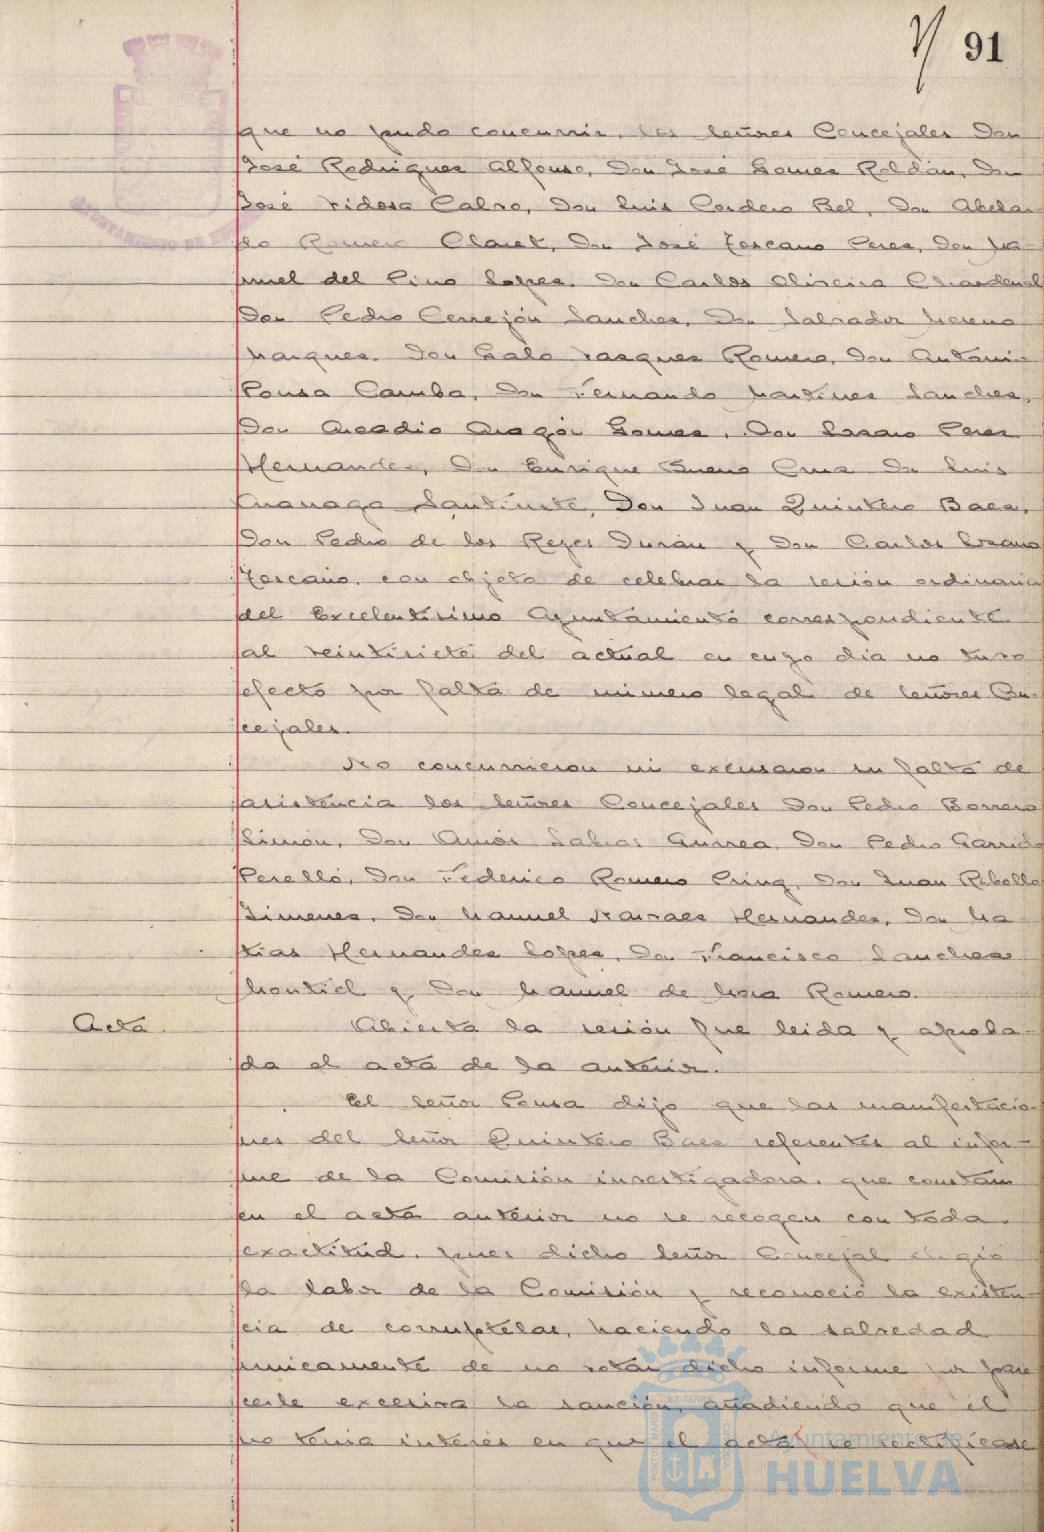 91
que no pudo concurrir, los señores Concejales Don
José Rodrigues Alfonso, Don José Gomes Roldán, Don
José Vidosa Calvo, Don Luis Cordero Bel, Don Abelar-
do Romero Claret, Don José Toscano Peres, Don Ma-
nuel del Pino Lopes, Don Carlos Oliveira Chardenal
Don Pedro Cerrejón Sanches, Don Salvador Moreno
Marques, Don Galo Vasques Romero, Don Antonio
Pousa Camba, Don Fernando Martines Sanches,
Don Arcadio Aragón Gomes, Don Peres
Hernandes, Don Enrique Bueno Crus Don Luis
Santiuste, Don Juan Quintero Baes,
Don Pedro de los Reyes Durán y Don Carlos Lozano
Toscano, con objeto de celebrar la sesión ordinaria
del Excelentísimo Ayuntamiento correspondiente
al veintisiete del actual en cuyo día no tuvo
efecto por falta de número legal de señores Con-
cejales.
No concurrieron ni excusaron su falta de
asistencia los señores Concejales Don Pedro Borrero
Limón, Don Amós Sabras Gurrea, Don Pedro Garrido
Perelló, Don Federico Romero Don Juan Rebollo
Jimenes, Don Manuel Narvaes Hernandes, Don Ma-
tias Hernandes Lopes, Don Francisco Sanches
Montiel y Don Manuel de Mora Romero.
Acta. Abierta la sesión fue leida y aproba-
da el acta de la anterior.
El señor Pousa dijo que las manifestacio-
nes del señor Quintero Baes referentes al infor-
me de la Comisión investigadora, que constam
en el acta anterior no se recogen con toda
exactitud, pues dicho señor Concejal elogió
la labor de la Comisión y reconoció la existen-
cia de corruptelas, haciendo la salvedad
unicamente de no votar dicho informe por pare
cerle excesiva la sanción, añadiendo que él
no tenia interés en que el acta se rectificase
Ayuntamiento de
HUELVA